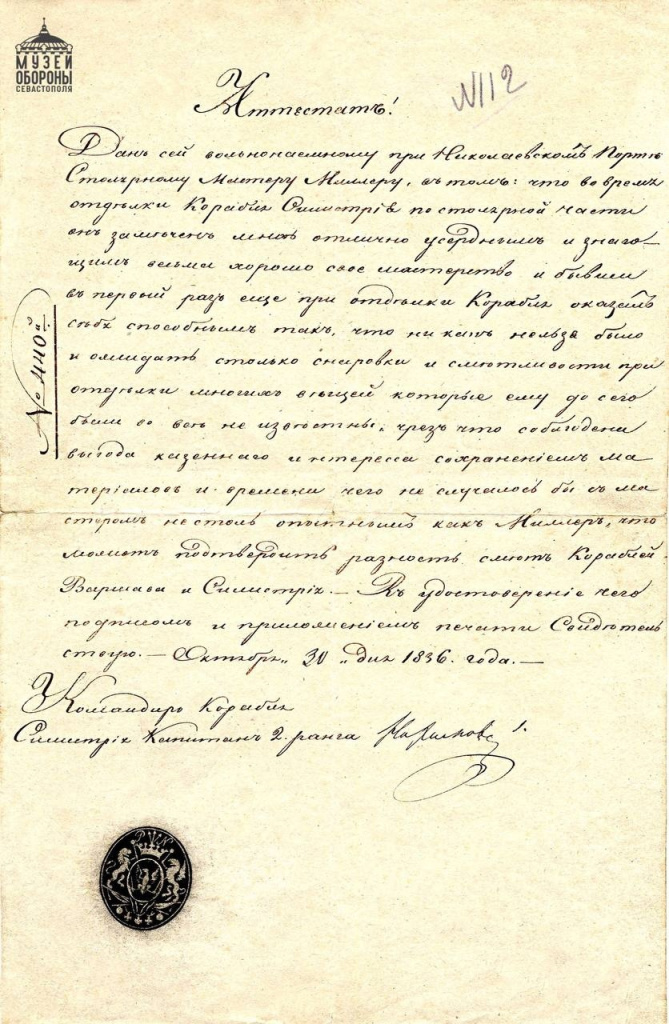 МУЗЕЙ
ОБОРОНЫ
СЕВАСТОПОЛЯ
№112
Аттестатъ!
Данъ сей вольнонаемному при Николаевскомъ Портѣ
Столярному Мастеру Миллеру, въ томъ: что во время
отдѣлки Корабля Силистрія по столярной части
онъ замѣченъ мною отлично усерднымъ и знаю-
щимъ весьма хорошо свое мастерство и бывши
въ первый разъ еще при отдѣлки Корабля оказалъ
себя способнымъ такъ, что ни какъ нельзя было
и ожидать столько снаровки и смѣтливости при
отдѣлки многихъ вещей которые ему до сего
были со всѣ не извѣстны; чрезъ что соблюдена
выгода казеннаго интересса сохраненіемъ ма
теріаловъ и времени чего не случалось бы съ ма
стеромъ нестоль опытнымъ какъ Миллеръ, что
можетъ подтвердить разность смѣтъ Кораблей
Варшава и Силистрія. — Въ удостовереніе чего
подписомъ и приложеніемъ печати Свидѣтель
ствую. — Октября „ 30 „ дня 1836. года. —
№ 440й
Командиръ Корабля
Силистрія Капитанъ 2. ранга Нахимовъ 1.